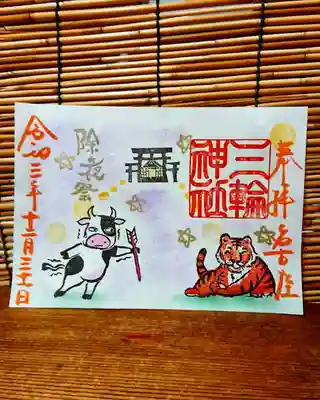 奉拝 名古屋
三輪
神社
除夜祭
令和三年十二月三十一日